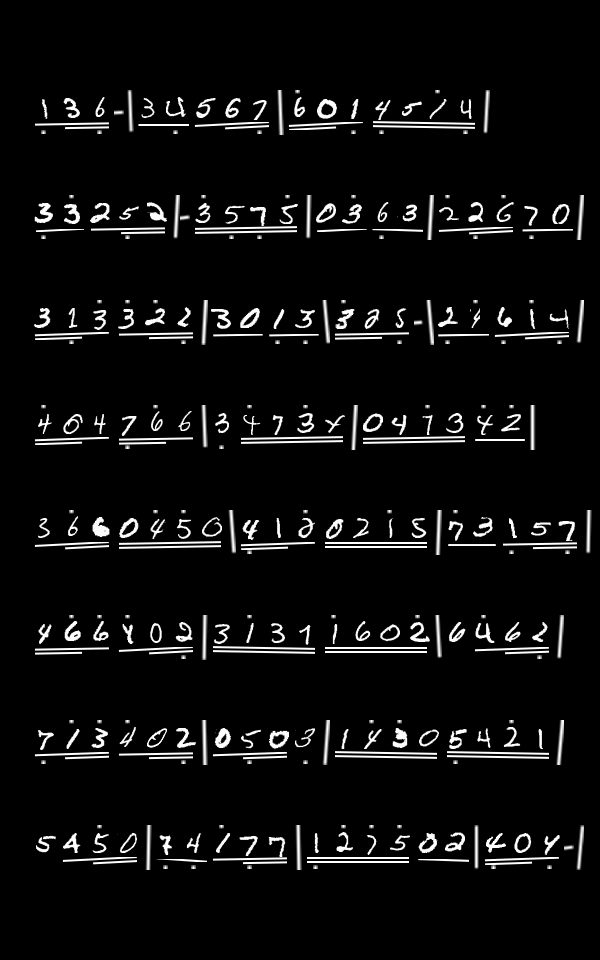 136-|34567|6014514
33252|-3575|0363|22670
313322|3015|325-|24614
404766|34734|047342
3660450|412|0215|73157
466402|3131|1602|6462
713402|0503|1430|5421
5450|74177|127502|404-|